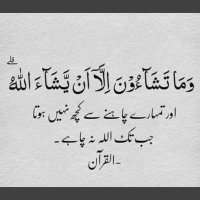 وَمَا تَشَآءُوْنَ اِلَّاۤ اَنْ يَّشَآءَ اللّٰهُ ۗ
اور تمہارے چاہنے سے کچھ نہیں ہوتا
جب تک اللہ نہ چاہے۔
-القرآن